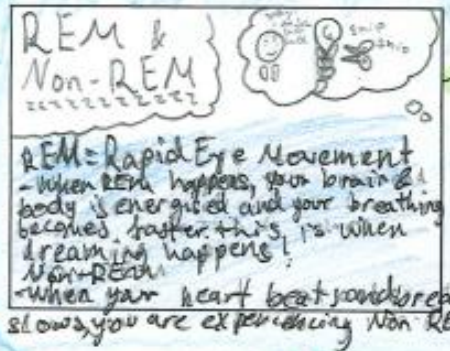 REM &
Non-REM
zzzzzzzzzzzz
snip
snip
REM = Rapid Eye Movement
-When REM happens, your brain &
body is energised and your breathing
becomes faster. this, is when
dreaming happens!
Non-REM
-When your heart beat and brea
slows, you are experiencing Non-RE